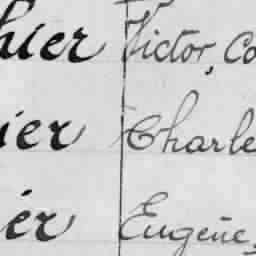 hier Victor, Co
ier Charle
ier Eugène,